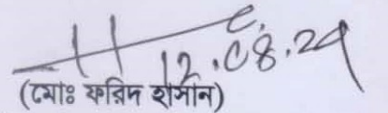 12.08.24
(মোঃ ফরিদ হাসান)